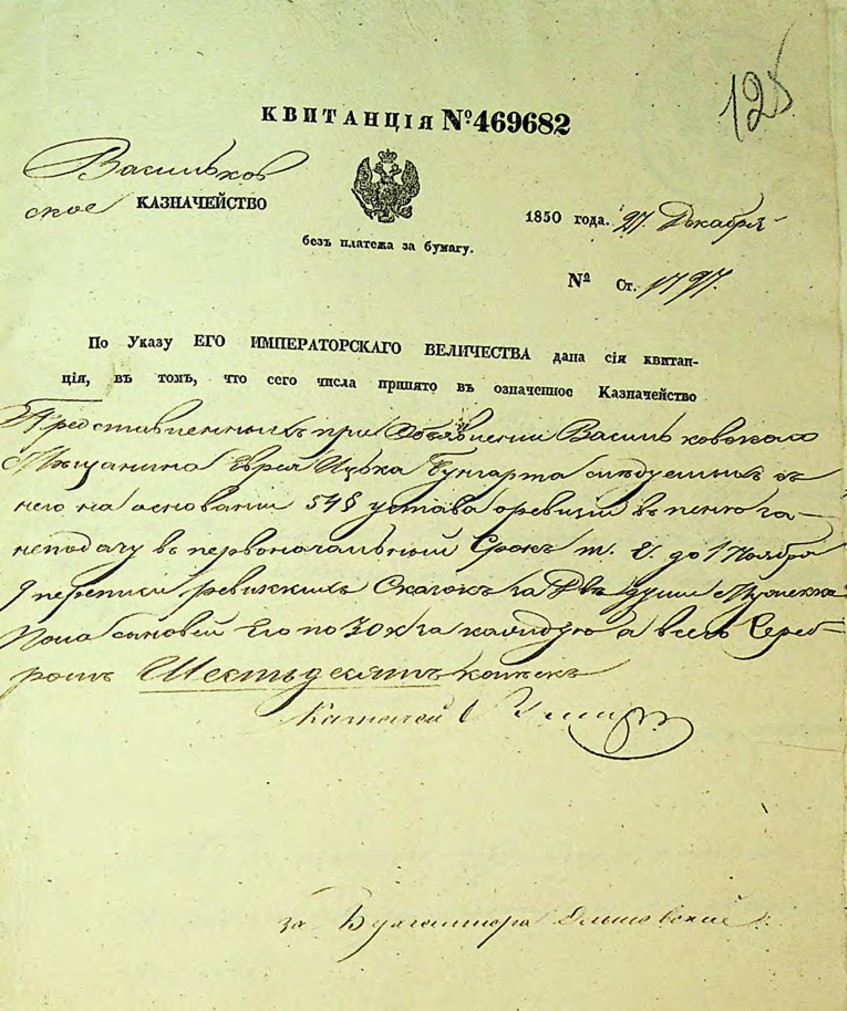 125
КВИТАНЦІЯ №469682
Васильков
ское КАЗНАЧЕЙСТВО
1850 года. 27. Декабря
безъ платежа за бумагу.
№ Ст. 1797.
По Указу ЕГО ИМПЕРАТОРСКАГО ВЕЛИЧЕСТВА дана сія квитан-
ція, въ томъ, что сего числа принято въ означенное Казначейство
Представленныхъ при Объявленіи Васильковскаго
Мѣщанина Еврея Ицька Гунгарта слѣдуемыхъ съ
него на основаніи устава о ревизіи въ пеню за
неподачу въ первоначальный Срокъ т. е. до 1 Ноября
9 переписи ревизкихъ Сказокъ за Двѣ души Мужеска
Пола сыновей Его по 30 к за каждую а всего Сереб-
ромъ Шестьдесятъ копѣекъ
Казначей
за Бухгалтера